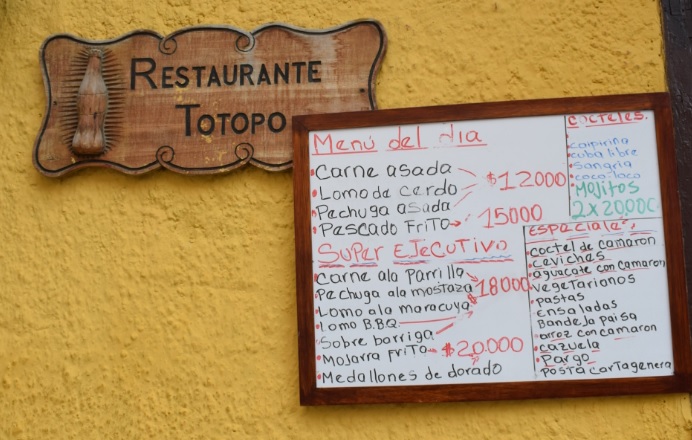 RESTAURANTE
TOTOPO
Menú del dia
Carne asada
Lomo de cerdo
Pechuga asada
$12000
Pescado Frito
15000
SUPER EJECUTIVO
Carne ala Parrilla
Pechuga ala mostaza
Lomo ala maracuya
$18000
Lomo B.B.Q.
Sobre barriga
Mojarra Frito
$20.000
Medallones de dorado
COCTELES.
caipirina
cuba libre
sangria
coco-loco
Mojitos
2x20000
ESPeciales,
coctel de camaron
ceviches
aguacate con camaron
vegetarianos
pastas
ensaladas
Bandeja paisa
arroz con camaron
cazuela
Pargo
Posta cartagenera